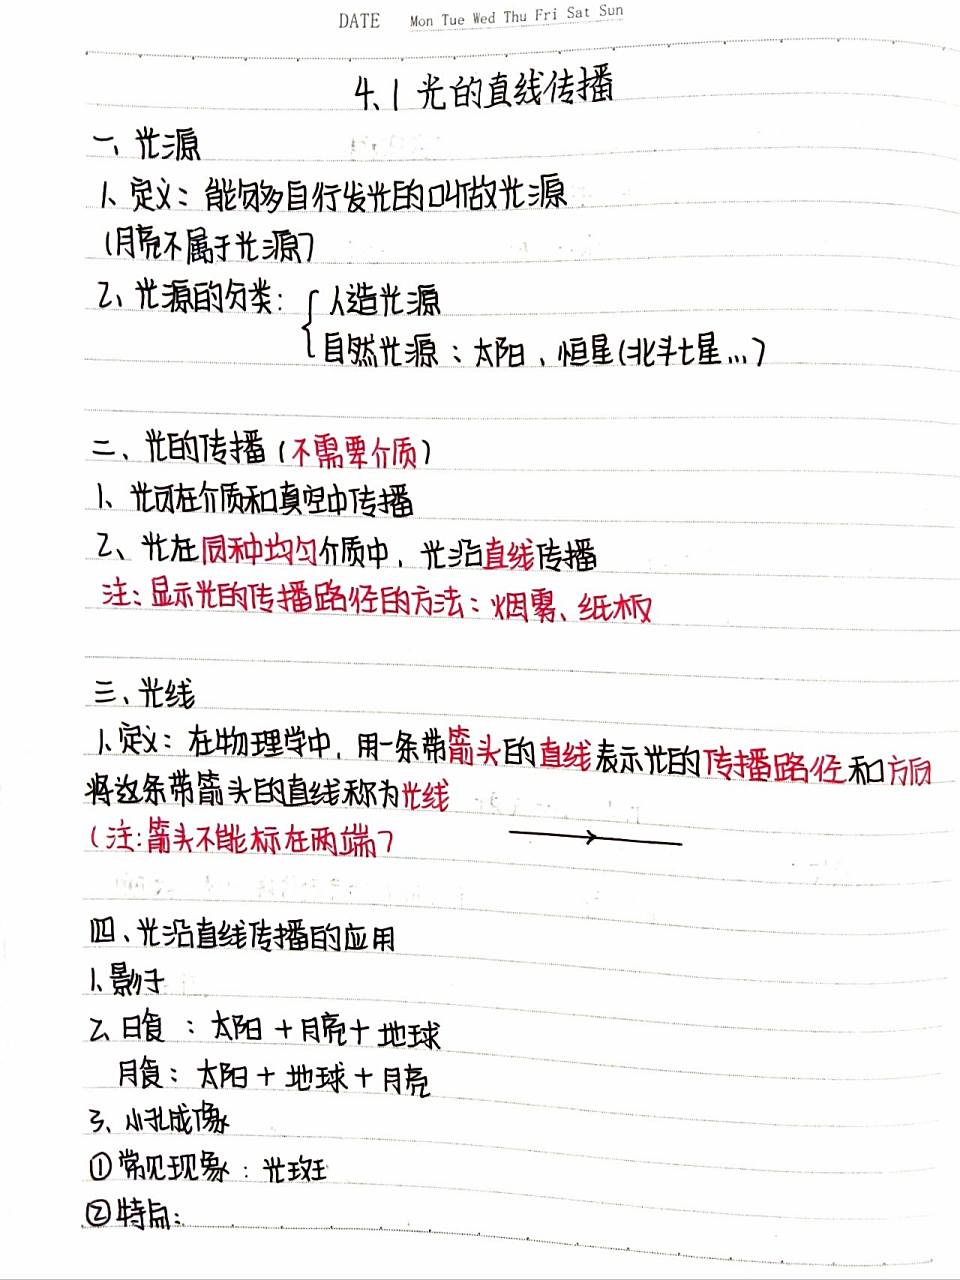 DATE Mon Tue Wed Thu Fri Sat Sun
4.1 光的直线传播
一、光源
1、定义：能够自行发光的叫做光源
(月亮不属于光源)
2、光源的分类：{人造光源
自然光源：太阳、恒星(北斗七星...)
二、光的传播(不需要介质)
1、光可在介质和真空中传播
2、光在同种均匀介质中，光沿直线传播
注：显示光的传播路径的方法：烟雾、纸板
三、光线
1.定义：在物理学中，用一条带箭头的直线表示光的传播路径和方向
将这条带箭头的直线称为光线
(注:箭头不能标在两端)
四、光沿直线传播的应用
1.影子
2.日食：太阳+月亮+地球
月食：太阳+地球+月亮
3、小孔成像
①常见现象：光斑
②特点：